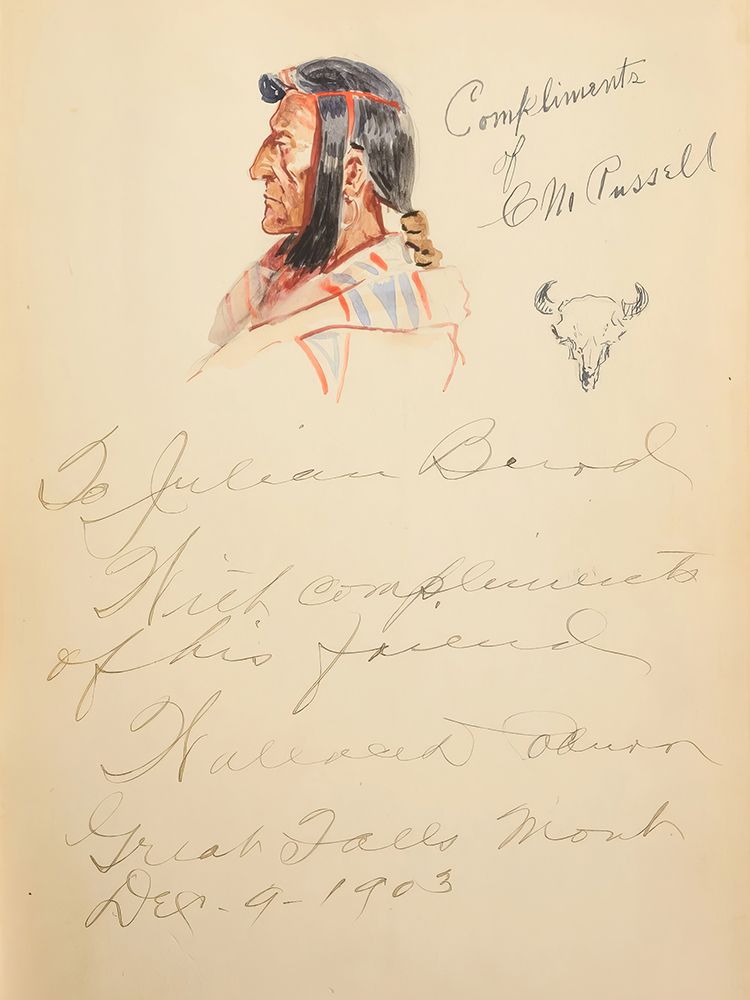 Compliments
of
CM Russell
To Julian
With compliments
of his friend
Great Falls Mont.
Dec - 9 - 1903